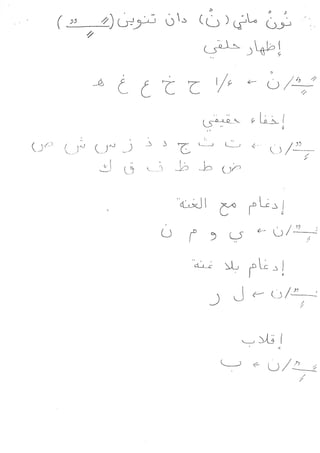 نُونْ ماتي (نْ) دان تنوين (ـًـٍـٌ)
إظهار حلقي
ـًـٍـٌ/نْ ← ء/ا ح خ ع غ هـ
إخفاء حقيقي
ـًـٍـٌ/ن ← ت ث ج د ذ ز س ش ص
ض ط ظ ف ق ك
إدغام مع الغنة
ـًـٍـٌ/ن ← ي و م ن
إدغام بلا غنة
ـًـٍـٌ/ن ← ل ر
إقلاب
ـًـٍـٌ/ن ← ب